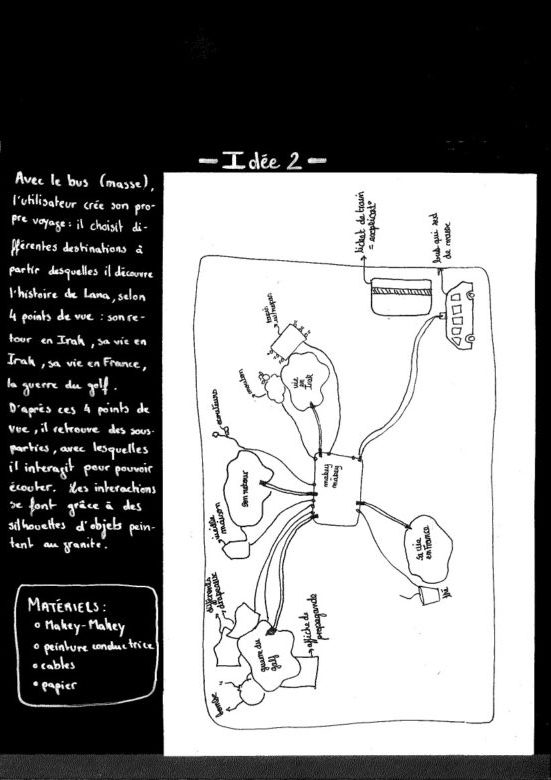 - Idée 2 -
Avec le bus (masse),
l'utilisateur crée son pro-
pre voyage : il choisit di-
fférentes destinations à
partir desquelles il découvre
l'histoire de Lana, selon
4 points de vue : son re-
tour en Irak, sa vie en
Irak, sa vie en France,
la guerre du golf.
D'après ces 4 points de
vue, il retrouve des sous-
parties, avec lesquelles
il interagit pour pouvoir
écouter. Les interactions
se font grâce à des
silhouettes d'objets pein-
tent au granite.
MATÉRIELS :
o Makey-Makey
o peinture conductrice
o cables
o papier
ticket de train
= explicat°
bus qui sert
de masse
tapis
mouton
vie en
Irak
makey
makey
son retour
maison
sa vie
en France
thé
différents
drapeaux
guerre du
golf
affiche de
propagande
bombe